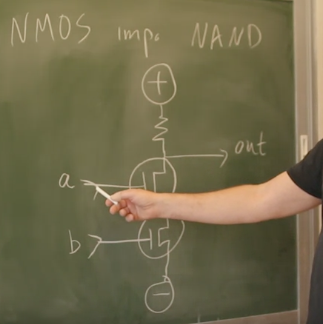 NMOS imp. NAND
+
out
a
b
-